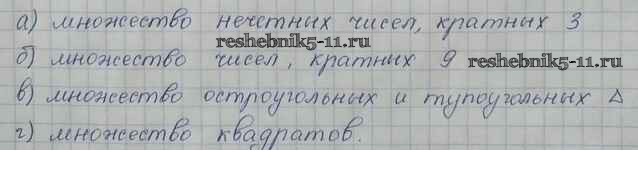 а) множество нечетных чисел, кратных 3
reshebnik5-11.ru
б) множество чисел, кратных 9 reshebnik5-11.ru
в) множество остроугольных и тупоугольных Δ
г) множество квадратов.